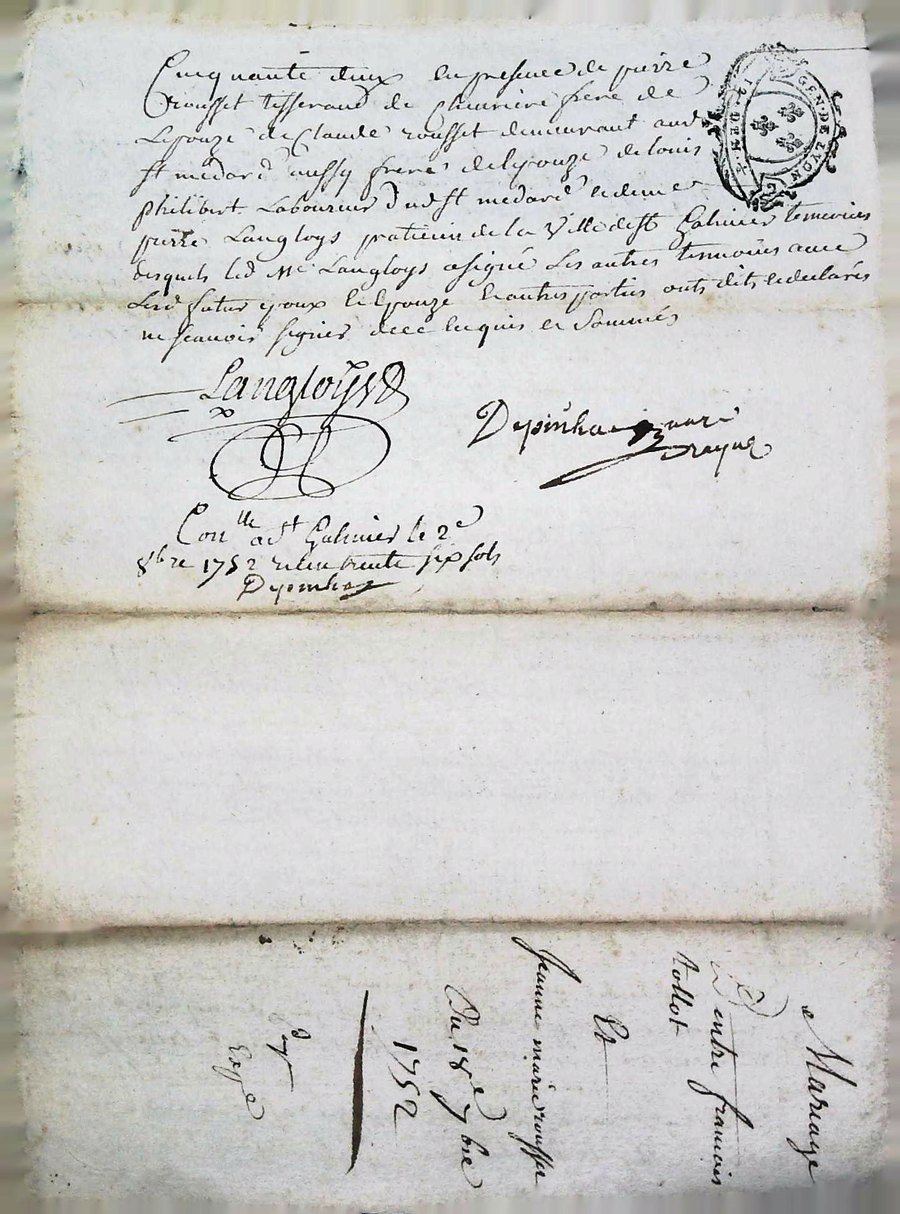 Cinquante deux en presence de pierre
rousset tisserand de Chevriere frere de
Lepouze de Claude rousset demeurant aud
st medard aussy frere de lepouze de louis
philibert Laboureur dud st medard et de me
pierre Langloys praticien de la Ville de st Galmier temoins
desquels led Me Langloys a signé Les autres temoins avec
Lesd futur epoux et Epouze et autres parties onts dits et declarés
ne scavoir signer de ce Enquis et Sommés
Langloys
Depinhac
Con lle a st Galmier le 2e
8bre 1752 trente six sols
Depinhac
GEN·DE LYON
Mariage
D'entre francois
tollot
Et
Jeanne marie rousset
Du 18e 7bre
1752
Expe